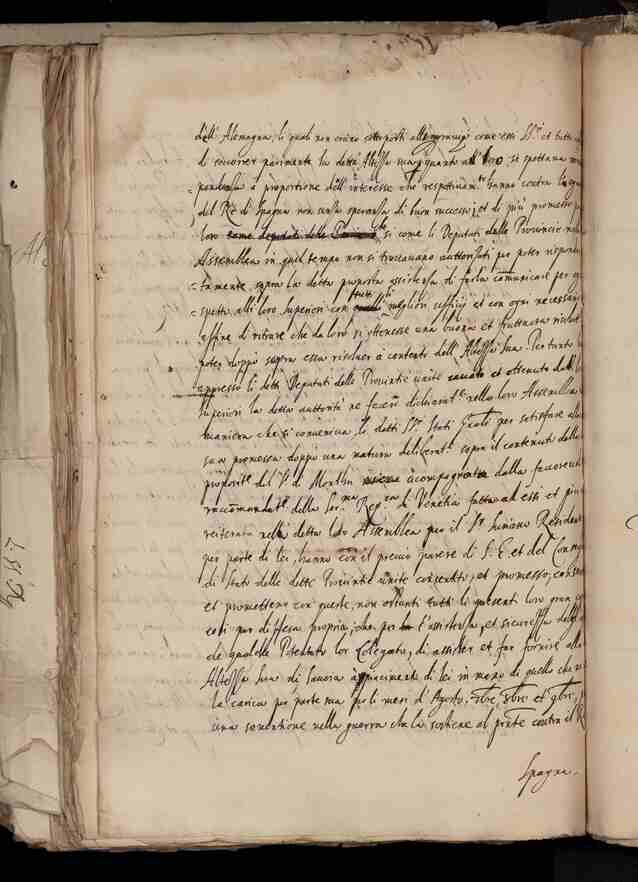 dell' Alemagna, li quali non erano interposti alli principi come essi SS.ri et tutta
di ricever parimente la detta Altezza in quanto all' si spettava
pondenza à proportione dell' interesse che respetivam.te hanno contra la
del Rè di Spagna non senza speranza di buon successi; et di più promesso
loro come deputati delle Provincie si come li Deputati dalle Provincie nella
Assemblea in quel tempo non si trovavano auttorisati per poter risponder
tamente sopra la detta proposta assistenza, di farla com̄unicare per
spetto alli loro Superiori con tutti li migliori ufficij et con ogni necessaria
affine di ritrare che da loro si ottenesse una buona et fruttuosa risolut
poter doppò sopra essa risolver à contento dell' Altezza Sua. Per tanto
appresso li detti Deputati delle Provintie unite cavato et ottenuta dalli
superiori la detta auttorità ne fecero dichiarat.e nella loro Assemblea
maniera che si conveniva, li detti SS.ri Stati Gn̄ali per satisfare alla
sua promessa doppo una matura deliberat.e sopra il contenuto della
proposit.e del S.r di Monthu insieme accompagnata dalla favorevole
raccom̄andat.e della Ser.ma Rep.ca di Venetia fatta ad essi et più
reiterata nella detta loro Assemblea per il S.r Suriano Residente
per parte di lei, hanno con il precio parere di S. E. et del Conseg
di stato delle dette Provintie unite consentito, et promesso, consen
et promettono con queste, non ostanti tutti li presenti loro gran
cosi per diffesa propria, che per l'assistenza, et sicurezza delli
de qualche Potentato lor Colegato, di assister et far fornire alla
Altezza Sua di Savoia à piacimento di lei in mano di quello che
la carica per parte sua per li mesi d' Agosto, 7bre, 8bre et 9bre,
una soventione nella guerra che la sostiene al p̄nte contra il Rè
Spagna.